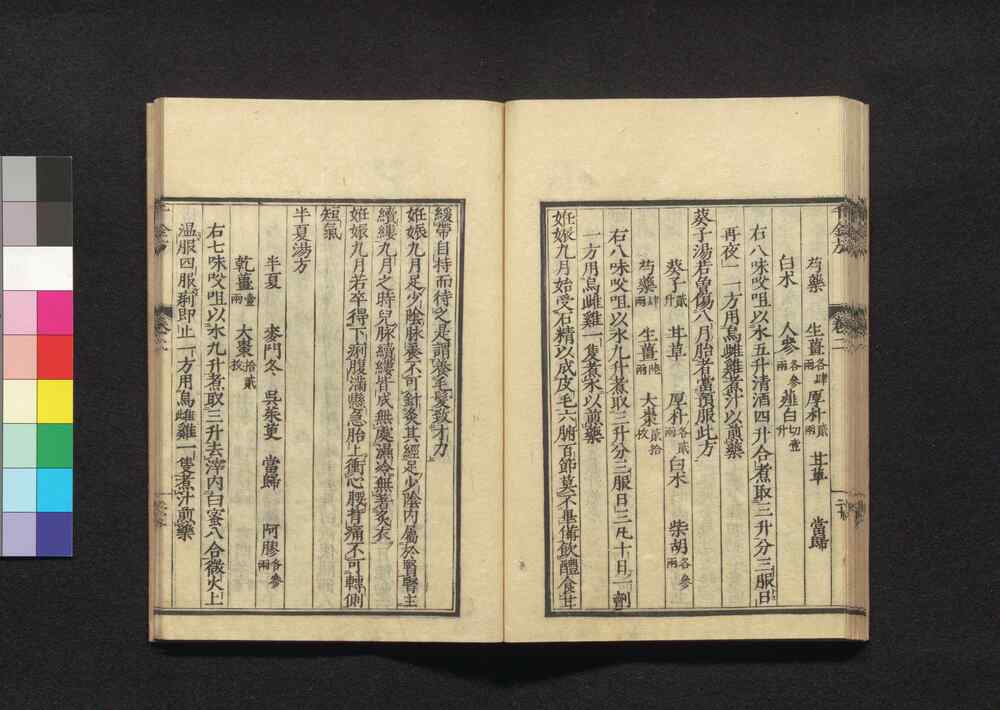 芍藥 生薑各肆兩 厚朴貳兩 甘草 當歸
白朮 人參各參兩 薤白切壹升
右八味㕮咀以水五升清酒四升合煮取三升分三服日
再夜一一方用烏雌雞煮汁以煎藥
葵子湯若曾傷八月胎者當預服此方
葵子貳升 甘草 厚朴各貳兩 白朮 柴胡各參兩
芍藥肆兩 生薑陸兩 大棗貳拾枚
右八味㕮咀以水九升煮取三升分三服日三凡十日一劑
一方用烏雌雞一隻煮水以煎藥
妊娠九月始受石精以成皮毛六腑百節莫不畢備飲醴食甘
緩帶自持而待之是謂養毛髮致才力
妊娠九月足少陰脉養不可針灸其經足少陰內屬於腎腎主
續縷九月之時兒脉續縷皆成無處濕冷無著炙衣
妊娠九月若卒得下痢腹滿懸急胎上衝心腰背痛不可轉側
短氣
半夏湯方
半夏 麥門冬 吳茱萸 當歸 阿膠各參兩
乾薑壹兩 大棗拾貳枚
右七味㕮咀以水九升煮取三升去滓內白蜜八合微火上
溫服四服痢即止一方用烏雌雞一隻煮汁煎藥